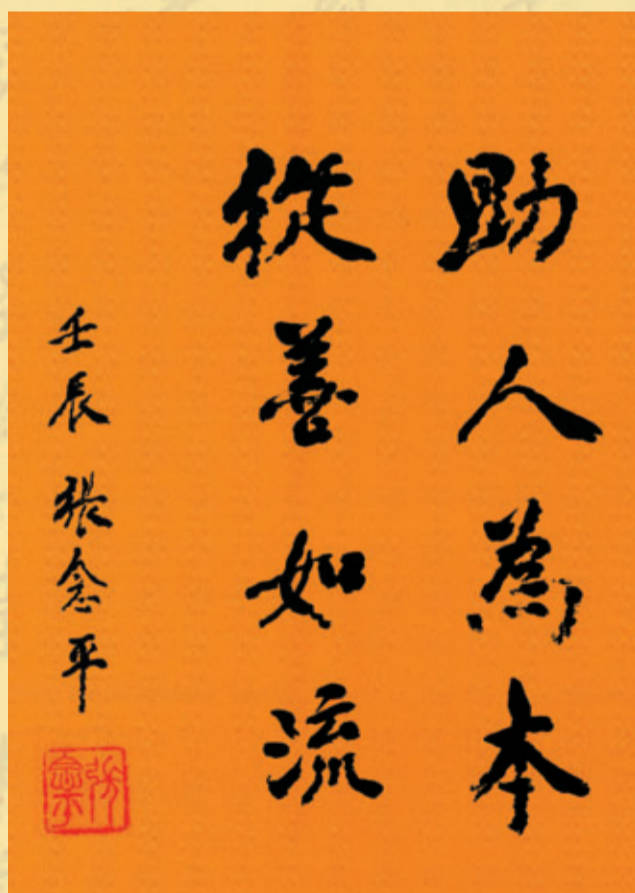 助人為本
從善如流
壬辰 張念平